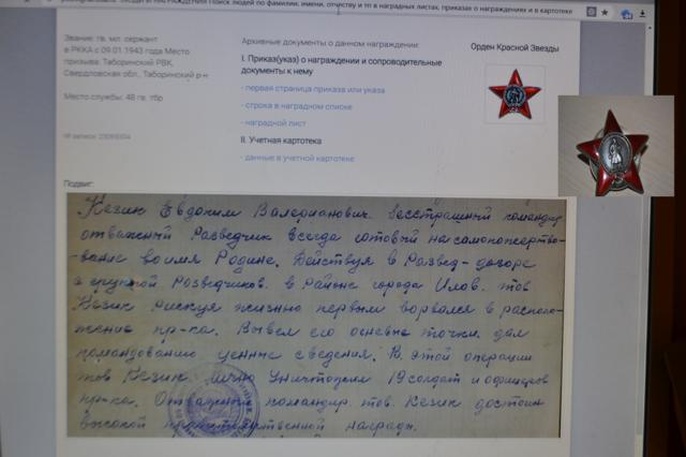 Поиск людей по фамилии, имени, отчеству и тп в наградных листах, приказах о награждениях и в картотеке
Звание: гв. мл. сержант
в РККА с 09.01.1943 года Место
призыва: Таборинский РВК,
Свердловская обл., Таборинский р-н
Место службы: 48 гв. тбр
№ записи:
Архивные документы о данном награждении:
I. Приказ(указ) о награждении и сопроводительные
документы к нему
- первая страница приказа или указа
- строка в наградном списке
- наградной лист
II. Учетная картотека
- данные в учетной картотеке
Орден Красной Звезды
Подвиг:
Кезик Евдоким Валерианович бесстрашный командир
отважный Разведчик всегда готовый на самопожертво-
-вание во имя Родине. Действуя в Развед-дозоре
с группой Розведчиков. в районе города Илов. тов
Кезик рискуя жизнью первым ворвался в располо-
жение пр-ка. Вывел его огневые точки. дал
командованию ценные сведения. В этой операции
тов Кезик лично Уничтожил 19 солдат и офицеров
пр-ка. командир тов. Кезик достоин
высокой правительственной награды.